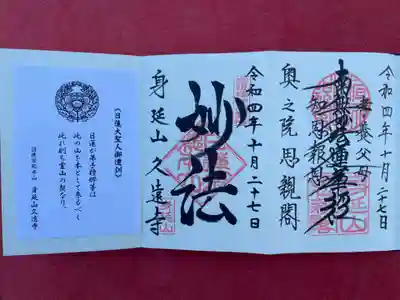 令和四年十月二十七日
孝養父母
南無妙法蓮華経
知恩報恩
奥之院思親閣
令和四年十月二十七日
妙法
身延山久遠寺
《日蓮大聖人御遺訓》
日蓮が弟子檀那等は
此の山を本として参るべし
此れ則ち霊山の契なり。
身延山久遠寺